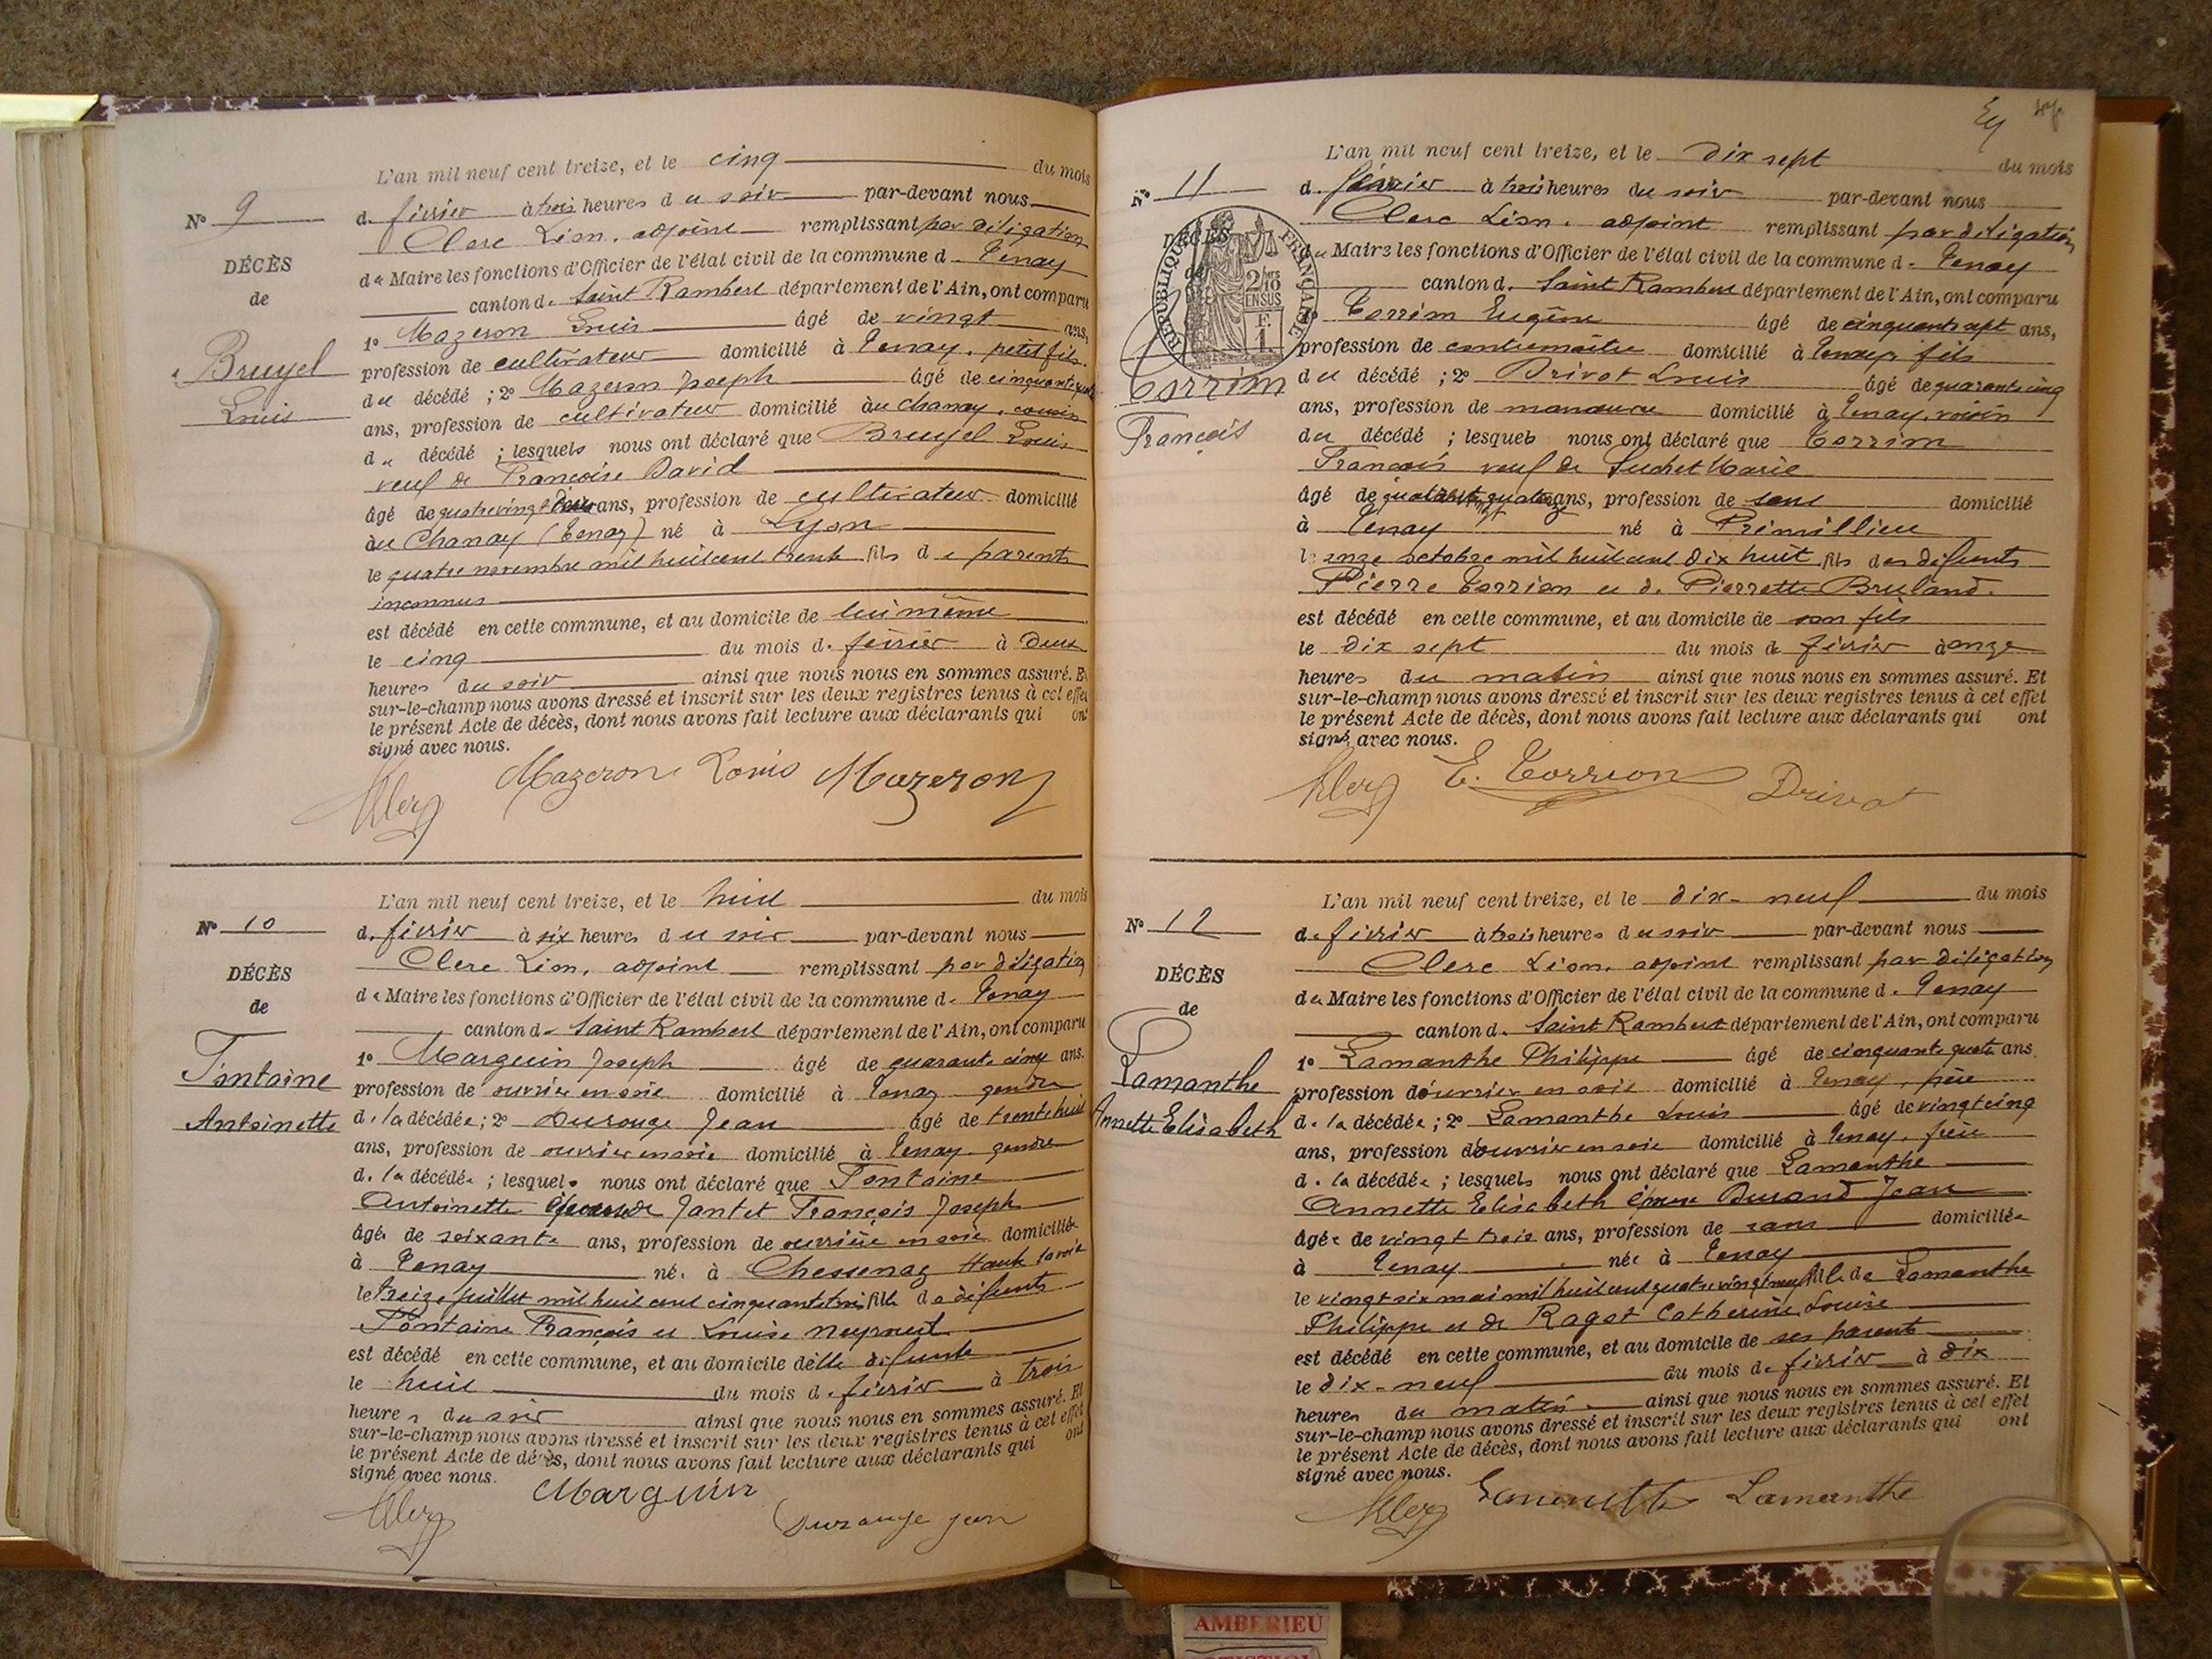 L'an mil neuf cent treize, et le cinq du mois
N° 9
de février à trois heures du soir par-devant nous
Clerc Léon, adjoint remplissant par délégation
DÉCÈS
du Maire les fonctions d'Officier de l'état civil de la commune de Tenay
de
canton de Saint Rambert département de l'Ain, ont comparu
1° Mazeron Louis âgé de vingt ans,
Bruyel
profession de cultivateur domicilié à Tenay, petit fils
Louis
du décédé ; 2° Mazeron Joseph âgé de
ans, profession de cultivateur domicilié au Chanay, cousin
du décédé ; lesquels nous ont déclaré que Bruyel Louis
veuf de Françoise David
âgé de quatre vingt deux ans, profession de cultivateur domicilié
au Chanay (Tenay) né à Lyon
le quatre novembre mil huit cent trente fils de parents
inconnus
est décédé en cette commune, et au domicile de lui même
le cinq du mois de février à deux
heures du soir ainsi que nous nous en sommes assuré. Et
sur-le-champ nous avons dressé et inscrit sur les deux registres tenus à cet effet
le présent Acte de décès, dont nous avons fait lecture aux déclarants qui ont
signé avec nous.
Mazeron Louis Mazeron
Clerc
L'an mil neuf cent treize, et le huit du mois
N° 10
de février à six heures du soir par-devant nous
Clerc Léon, adjoint remplissant par délégation
DÉCÈS
du Maire les fonctions d'Officier de l'état civil de la commune de Tenay
de
canton de Saint Rambert département de l'Ain, ont comparu
1° Marguin Joseph âgé de quarante cinq ans.
Fontaine
profession de ouvrier en soie domicilié à Tenay gendre
Antoinette
de la décédée ; 2° Durouge Jean âgé de trente huit
ans, profession de ouvrier en soie domicilié à Tenay gendre
de la décédée ; lesquels nous ont déclaré que Fontaine
Antoinette épouse de Jantet François Joseph
âgée de soixante ans, profession de ouvrière en soie domiciliée
à Tenay née à Chessenaz Haute Savoie
le treize juillet mil huit cent cinquante trois fille de défunts
Fontaine François et Louise
est décédé en cette commune, et au domicile de elle défunte
le huit du mois de février à trois
heures du soir ainsi que nous nous en sommes assuré. Et
sur-le-champ nous avons dressé et inscrit sur les deux registres tenus à cet effet
le présent Acte de décès, dont nous avons fait lecture aux déclarants qui ont
signé avec nous.
Marguin
Clerc Durouge jean
L'an mil neuf cent treize, et le dix sept du mois
N° 11
de février à trois heures du soir par-devant nous
Clerc Léon, adjoint remplissant par délégation
DÉCÈS
du Maire les fonctions d'Officier de l'état civil de la commune de Tenay
de
RÉPUBLIQUE FRANÇAISE
2/10 EN SUS
canton de Saint Rambert département de l'Ain, ont comparu
1° Torrion Eugène âgé de cinquante sept ans,
profession de contremaître domicilié à Tenay, fils
Torrion
du décédé ; 2° Drivot Louis âgé de quarante cinq
François
ans, profession de manœuvre domicilié à Tenay, voisin
du décédé ; lesquels nous ont déclaré que Torrion
François veuf de Suchet Marie
âgé de ans, profession de sans domicilié
à Tenay né à Prémillieu
le onze octobre mil huit cent dix huit fils des défunts
Pierre Torrion et de Pierrette Bruland.
est décédé en cette commune, et au domicile de son fils
le dix sept du mois de février à onze
heures du matin ainsi que nous nous en sommes assuré. Et
sur-le-champ nous avons dressé et inscrit sur les deux registres tenus à cet effet
le présent Acte de décès, dont nous avons fait lecture aux déclarants qui ont
signé avec nous.
Clerc E. Torrion Drivot
L'an mil neuf cent treize, et le dix-neuf du mois
N° 12
de février à trois heures du soir par-devant nous
Clerc Léon, adjoint remplissant par délégation
DÉCÈS
du Maire les fonctions d'Officier de l'état civil de la commune de Tenay
de
canton de Saint Rambert département de l'Ain, ont comparu
1° Lamanthe Philippe âgé de cinquante quatre ans
Lamanthe
profession d'ouvrier en soie domicilié à Tenay, père
Annette Elisabeth
de la décédée ; 2° Lamanthe Louis âgé de vingt cinq
ans, profession d'ouvrier en soie domicilié à Tenay, frère
de la décédée ; lesquels nous ont déclaré que Lamanthe
Annette Elisabeth épouse Durand Jean
âgée de vingt trois ans, profession de sans domiciliée
à Tenay née à Tenay
le vingt six mai mil huit cent quatre vingt neuf fille de Lamanthe
Philippe et de Ragot Catherine Louise
est décédé en cette commune, et au domicile de ses parents
le dix-neuf du mois de février à dix
heures du matin ainsi que nous nous en sommes assuré. Et
sur-le-champ nous avons dressé et inscrit sur les deux registres tenus à cet effet
le présent Acte de décès, dont nous avons fait lecture aux déclarants qui ont
signé avec nous.
Clerc Lamanthe
AMBERIEU